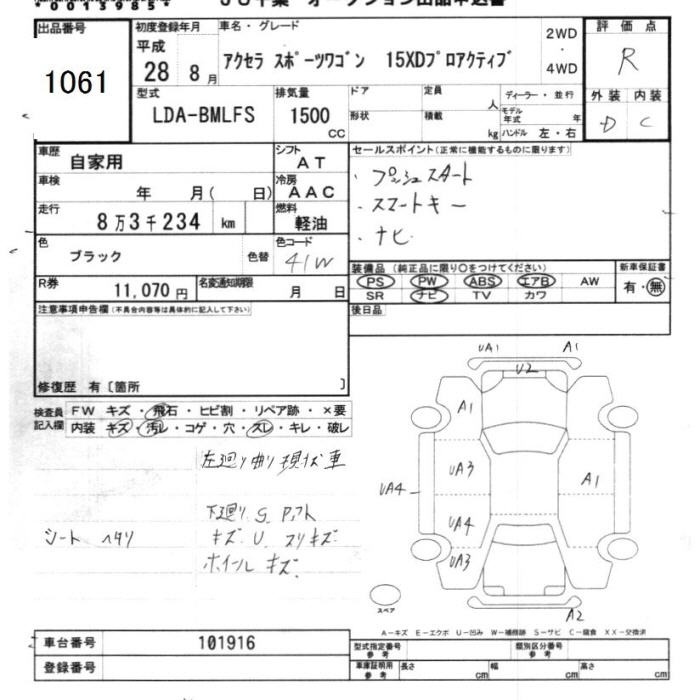 *00139854*
JU千葉 オークション出品申込書
出品番号
1061
初度登録年月
平成
28 8月
車名・グレード
アクセラ スポーツワゴン 15XDプロアクティブ
2WD
・
4WD
評価点
R
外装 内装
D C
型式
LDA-BMLFS
排気量
1500
CC
ドア
定員
人
形状
積載
kg
ディーラー・並行
モデル年式 年
ハンドル 左・右
車歴
自家用
シフト
AT
車検
年 月( 日)
冷房
AAC
走行
8万3千234 km
燃料
軽油
色
ブラック
色替
色コード
41W
R券
11,070円
名変通知期限
月 日
セールスポイント(正常に機能するものに限ります)
・プッシュスタート
・スマートキー
・ナビ
装備品(純正品に限り○をつけてください)
PS PW ABS エアB AW
SR ナビ TV カワ
新車保証書
有・無
後日品
注意事項申告欄(不具合内容等は具体的に記入して下さい)
修復歴 有〔箇所 〕
検査員記入欄
FW キズ・飛石・ヒビ割・リペア跡・×要
内装 キズ・汚レ・コゲ・穴・スレ・キレ・破レ
左廻り曲り現状車
下廻りS Pアフト
シート ヘタリ
キズ U スリキズ
ホイール キズ
UA1 A1
U2
A1
UA3
A1
UA4
UA4
UA3
スペア
A2
A-キズ E-エクボ U-凹み W-補修跡 S-サビ C-腐食 XX-交換済
車台番号
101916
登録番号
型式指定番号
参考
類別区分番号
参考
車庫証明用
参考
長さ cm
幅 cm
高さ cm